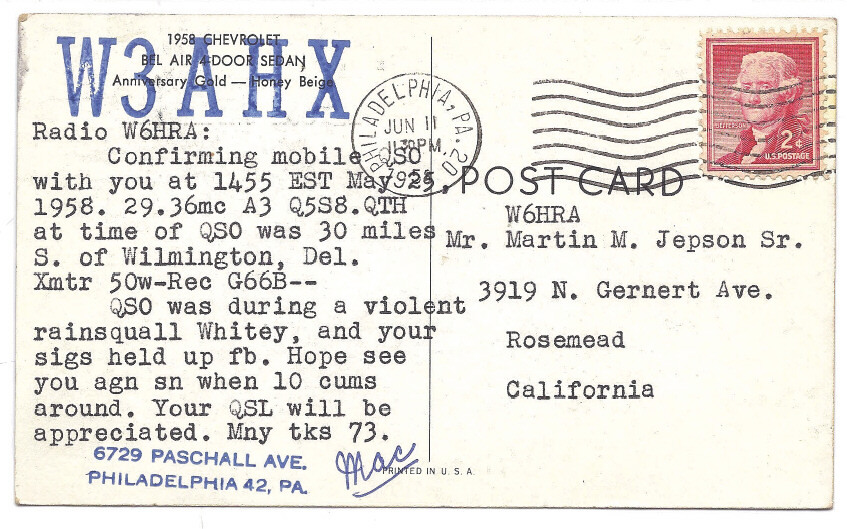 1958 CHEVROLET
BEL AIR 4-DOOR SEDAN
Anniversary Gold — Honey Beige
W3AHX
Radio W6HRA:
Confirming mobile QSO
with you at 1455 EST May 25,
1958. 29.36mc A3 Q5S8.QTH
at time of QSO was 30 miles
S. of Wilmington, Del.
Xmtr 50w-Rec G66B--
QSO was during a violent
rainsquall Whitey, and your
sigs held up fb. Hope see
you agn sn when 10 cums
around. Your QSL will be
appreciated. Mny tks 73.
6729 PASCHALL AVE.
PHILADELPHIA 42, PA.
Mac
PRINTED IN U. S. A.
PHILADELPHIA, PA. 20
JUN 11
PM
1958
JEFFERSON
2¢
U.S. POSTAGE
POST CARD
W6HRA
Mr. Martin M. Jepson Sr.
3919 N. Gernert Ave.
Rosemead
California